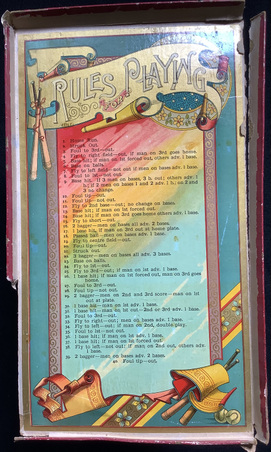 RULES
for
PLAYING
1. Home Run.
2. Struck Out.
3. Foul to 3rd—out.
4. Fly to right field—out, if man on 3rd goes home.
5. Base hit; if man on 1st forced out, others adv. 1 base.
6. Base on balls.
7. Fly to left field—not out if men on bases adv. 1 base.
8. Foul to
9. Base hit; if 3 men on bases,
hit; if 2 men on bases 1 and 2 adv. 1 b.; on 2 and
3 no change.
10. Foul tip—out.
11. Foul tip—not out.
12. Fly to 2nd base—out; no change on bases.
13. Base hit; if man on 1st forced out.
14. Base hit; if men on 3rd goes home others adv. 1 base.
15. Fly to short—out.
16. 2 bagger—men on bases all adv. 2 bases.
17. Base hit, if man on 3rd out at home plate.
18. Passed ball—men on bases adv. 1 base.
19. Fly to centre field—out.
20. Foul tip—out.
21. Struck out.
22. 3 bagger—men on bases all adv. 3 bases.
23. Base on balls.
24. Fly to 1st—out.
25. Fly to 3rd—out; if man on 1st adv. 1 base.
26. 1 base hit; if man on 1st forced out, man on 3rd goes
home.
27. Foul to 3rd—out.
28. Foul tip—not out.
29. 2 bagger—men on 2nd and 3rd score—man on 1st
out at plate.
30. 1 base hit—man on 1st adv. 1 base.
31. 1 base hit—man on 1st out—2nd or 3rd adv. 1 base.
32. Foul to 3rd—out.
33. Fly to right—out; men on bases adv. 1 base.
34. Fly to left—out; if man on 2nd, double play.
35. Foul to 1st—out.
36. 1 base hit; if man on 1st, adv. 1 base.
37. 1 base hit; if man on 1st forced out
38. Fly to left—not out; if men on 2nd out, others adv.
1 base.
39. 2 bagger—men on bases adv. 2 bases.
40. Foul tip—out.